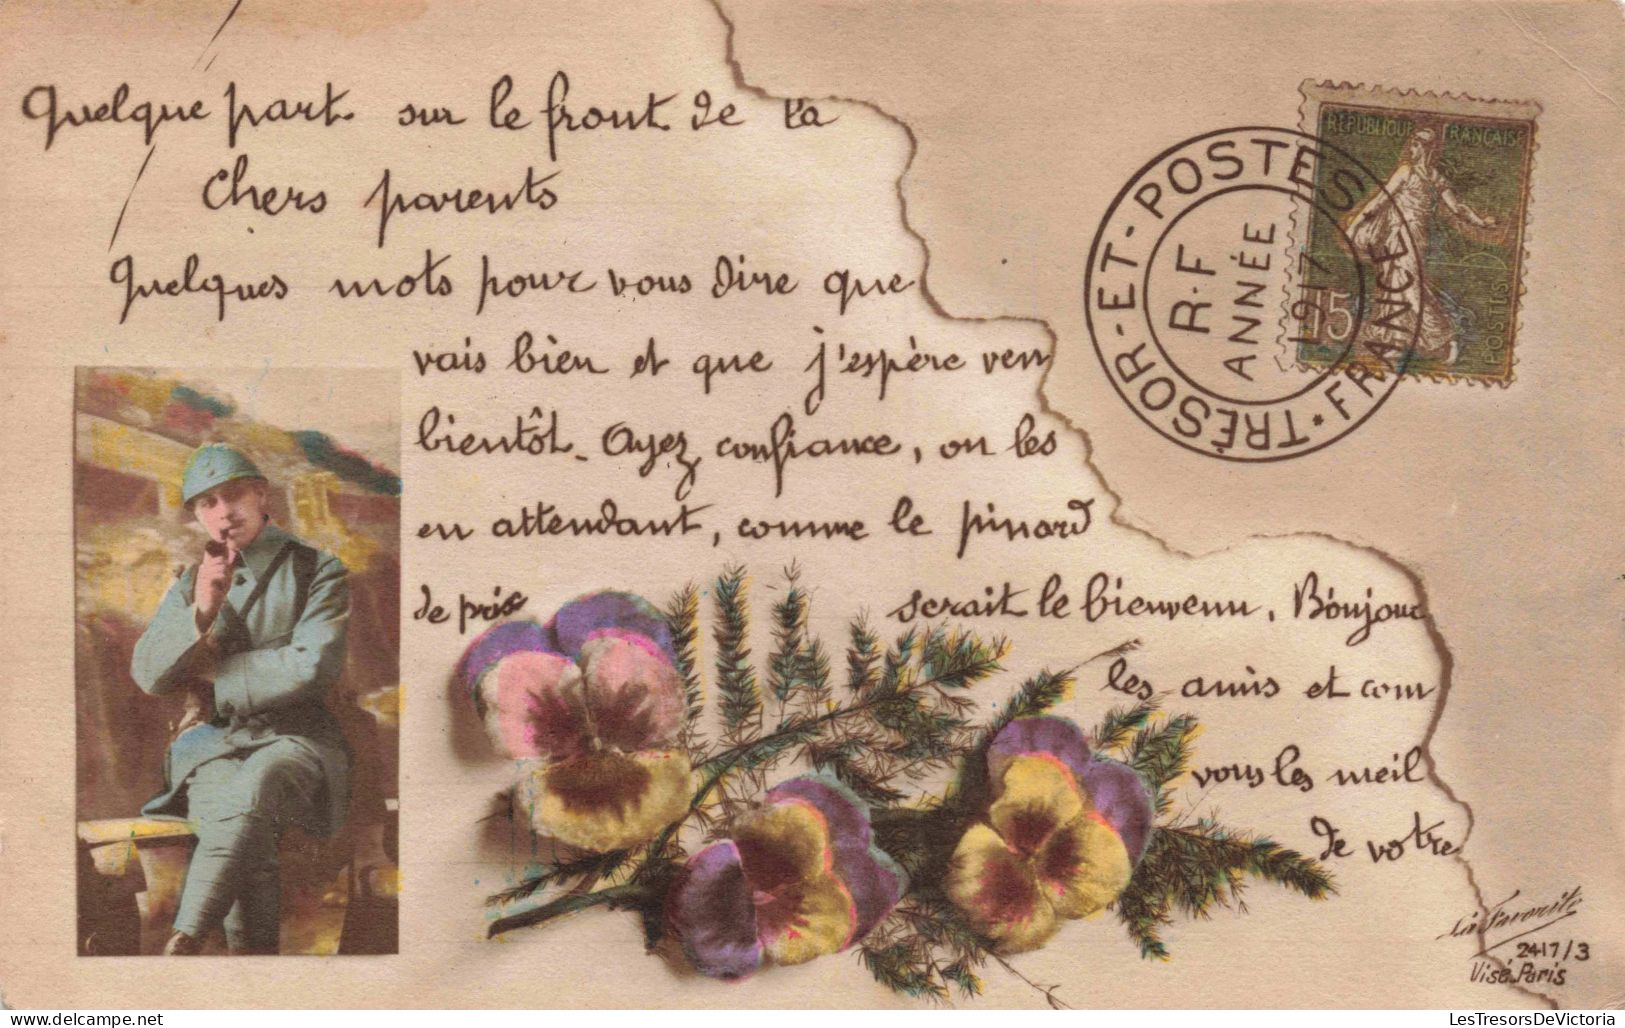 Quelque part sur le front de la
Chers parents
Quelques mots pour vous dire que
vais bien et que j'espère ven
bientôt. Ayez confiance, on les
en attendant, comme le pinard
de prix serait le bienvenu. Bonjour
les amis et com
vous les meil
de votre
TRÉSOR-ET-POSTES
FRANCE
R.F
ANNÉE
1917
REPUBLIQUE FRANÇAISE
15
POSTES
La Favorite
2417/3
Visé Paris
LesTresorsDeVictoria